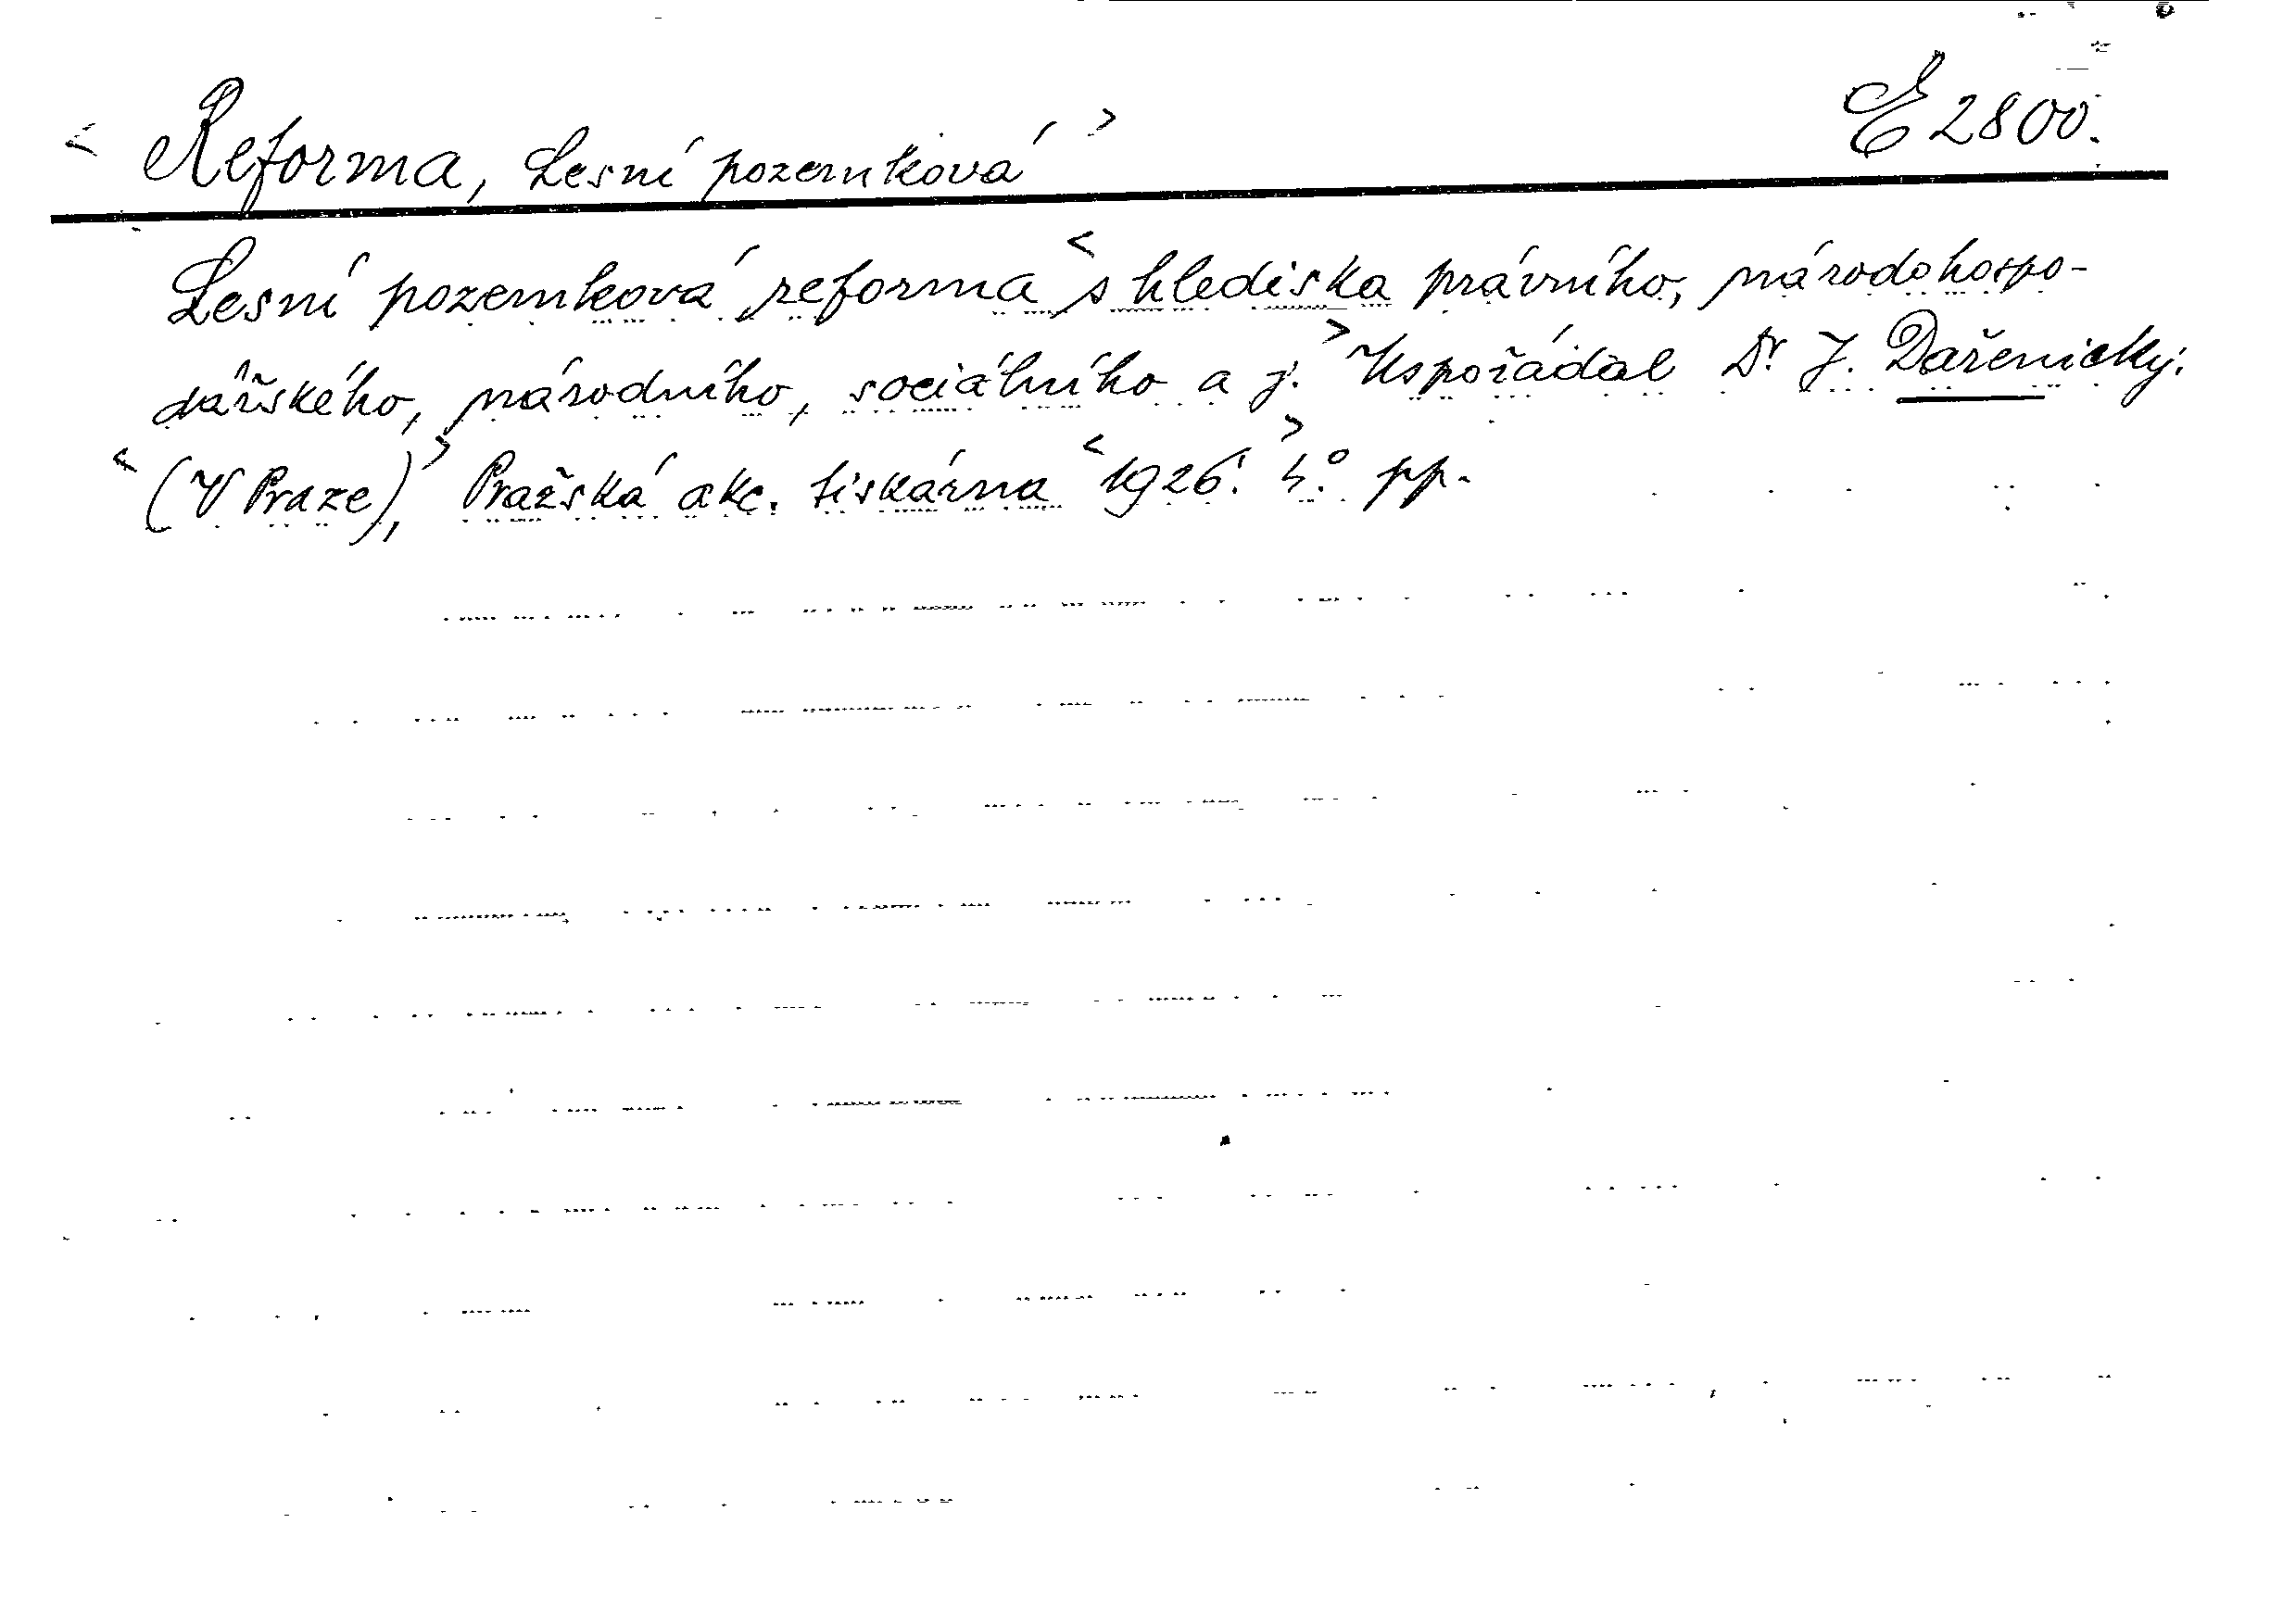 < Reforma, Lesní pozemková > E 2800.
Lesní pozemková reforma < s hlediska právního, národohospo-
dářského, národního, sociálního a j. > Uspořádal Dr. J. Dařenický.
< (V Praze), > Pražská akc. tiskárna < 1926. > 4.° pp.